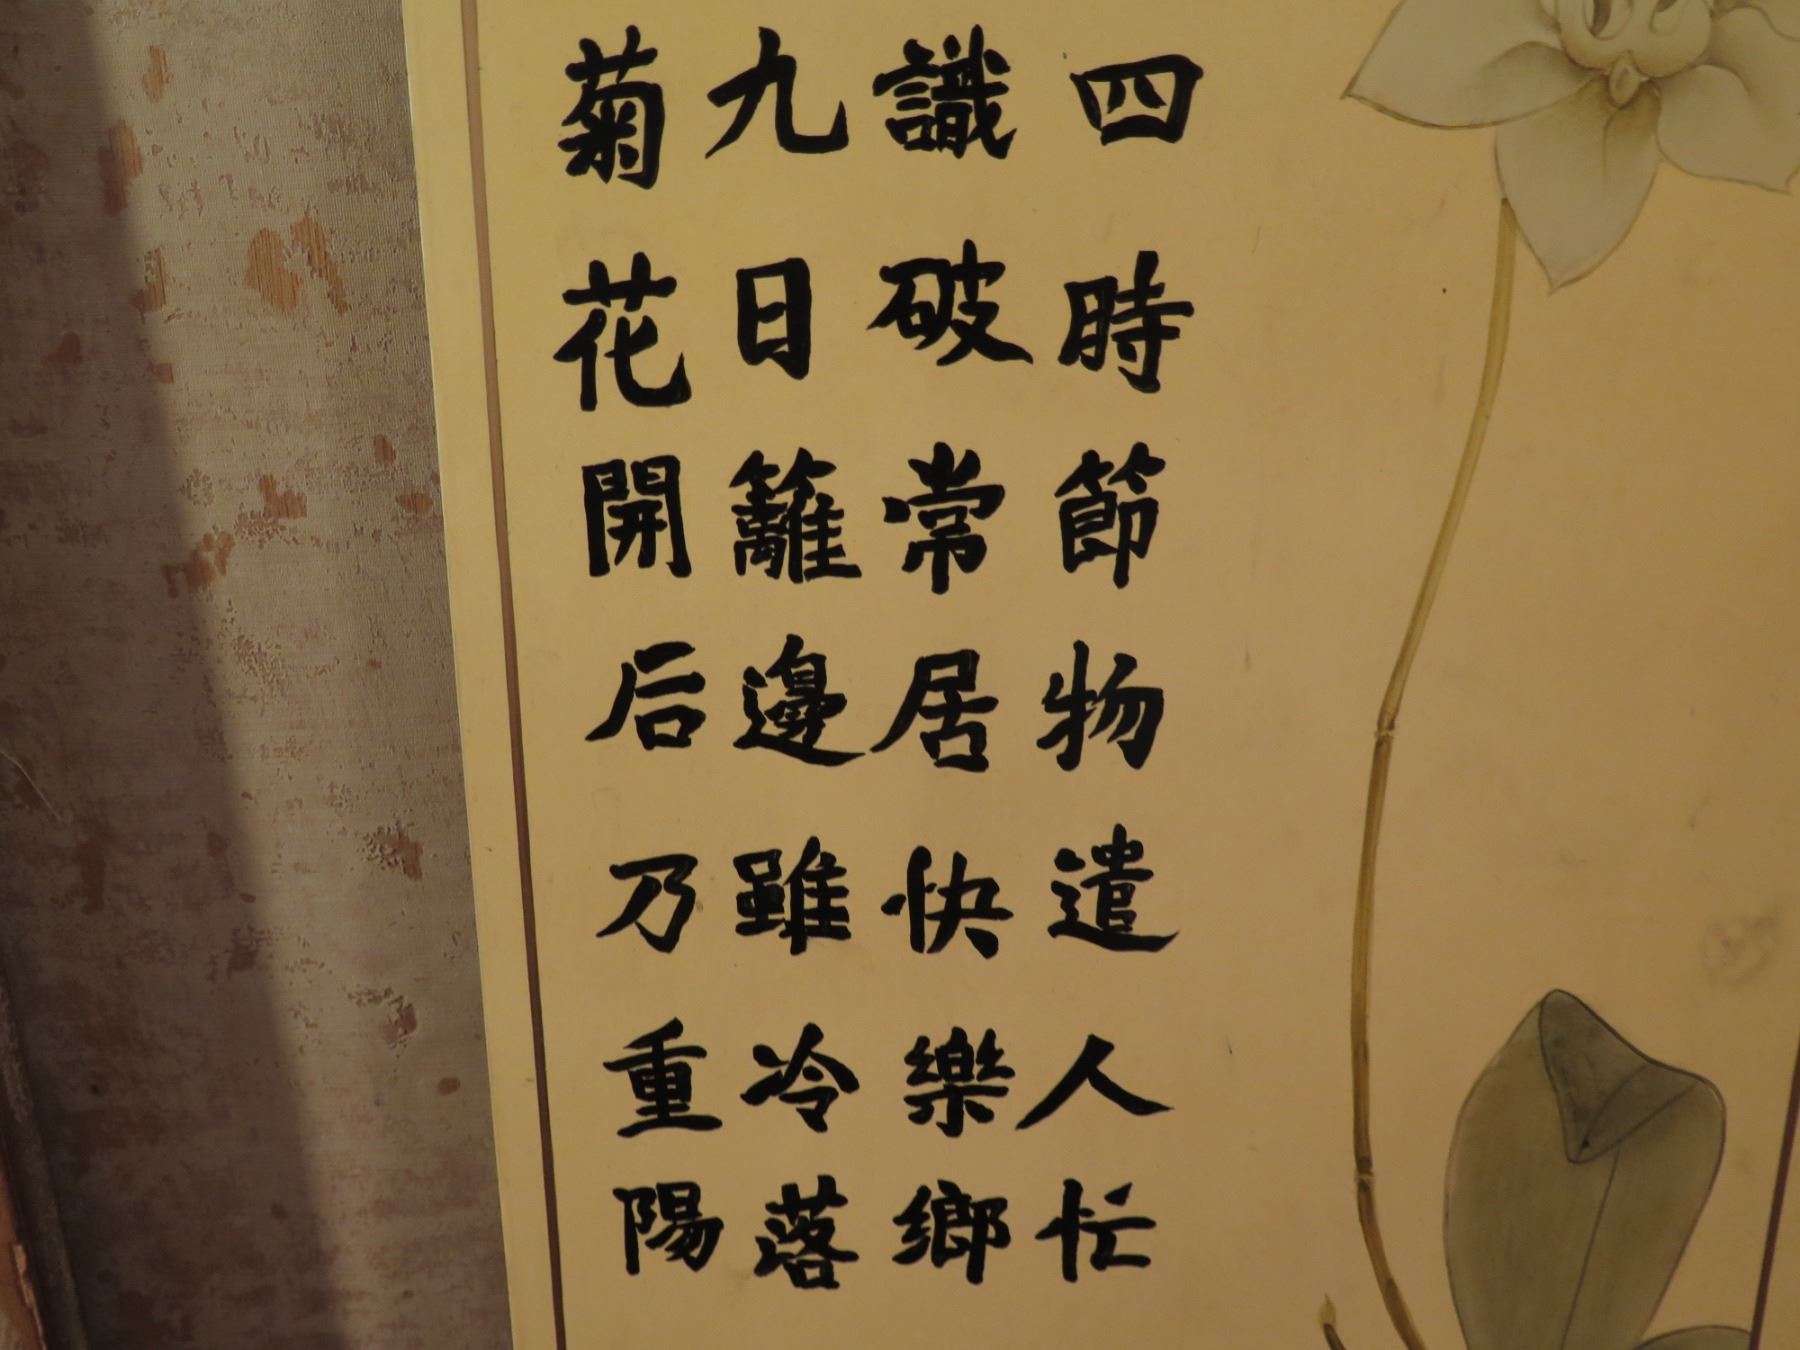 四時節物遣人忙
識破常居快樂鄉
九日籬邊雖冷落
菊花開后乃重陽